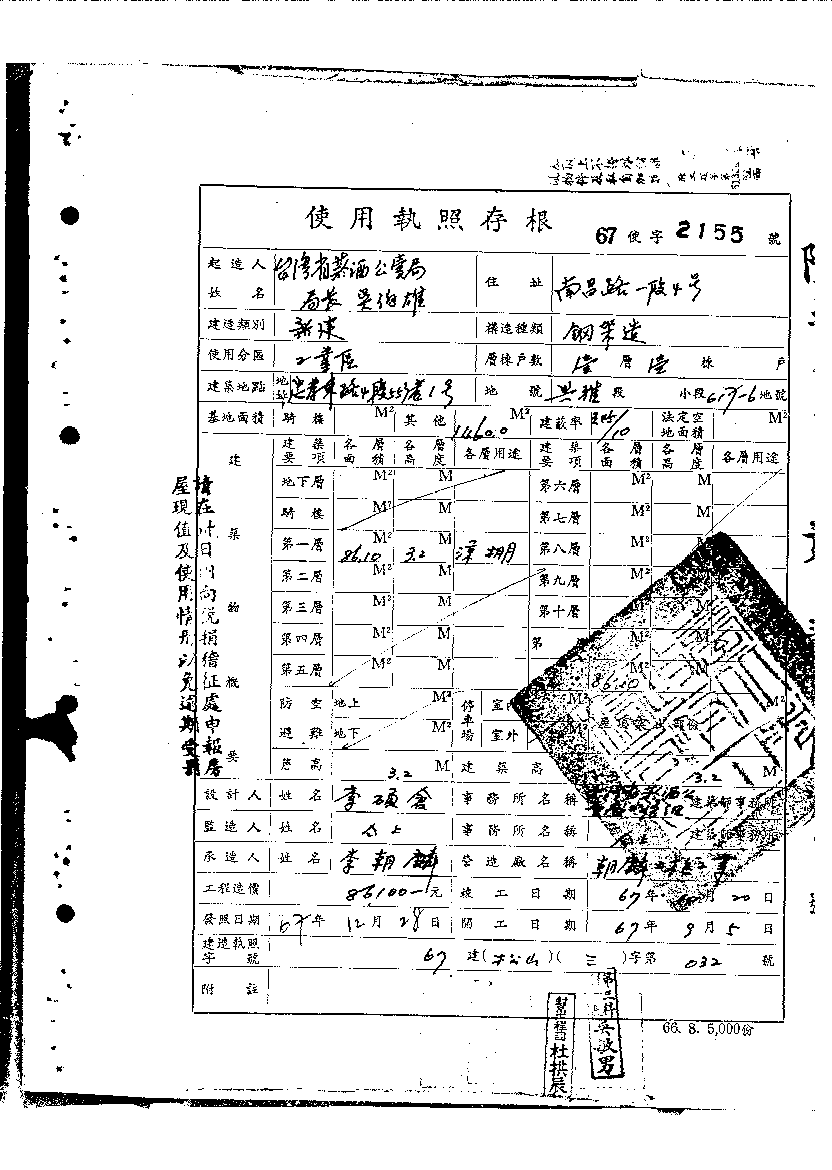 使用執照存根 67使字2155號
起造人姓名 台灣省菸酒公賣局 局長 吳伯雄 住址 南昌路一段4号
建造類別 新建 構造種類 鋼架造
使用分區 工業區 層棟戶數 壹層壹棟 戶
建築地點 地址 忠孝東路4段553巷1号 地號 興雅段 小段 地號
基地面積 騎樓 M² 其他 M² 建蔽率 /10 法定空地面積 M²
建築物概要
建築要項 各層面積 各層高度 各層用途 建築要項 各層面積 各層高度 各層用途
地下層 M² M 第六層 M² M
騎樓 M² M 第七層 M² M
第一層 86.10 M² 3.2 M 涼棚 第八層 M² M
第二層 M² M 第九層 M² M
第三層 M² M 第十層 M² M
第四層 M² M 第 M² M
第五層 M² M 86.10 M²
防空避難 地上 M² 停車場 室內 M²
地下 M² 室外 M²
簷高 3.2 M 建築高 3.2 M
設計人 姓名 李碩會 事務所名稱 建築師事務所
監造人 姓名 仝上 事務所名稱 仝上 建築師事務所
承造人 姓名 李朝麟 營造廠名稱 朝麟
工程造價 86100— 元 竣工日期 67年 月20日
發照日期 67年12月28日 開工日期 67年9月5日
建造執照字號 67建(松山)(三)字第032號
附註
66. 8. 5,000份
第二科 吳波男
杜拱辰
請在卅日內向稅捐稽征處申報房
屋現值及使用情形以免逾期受罰